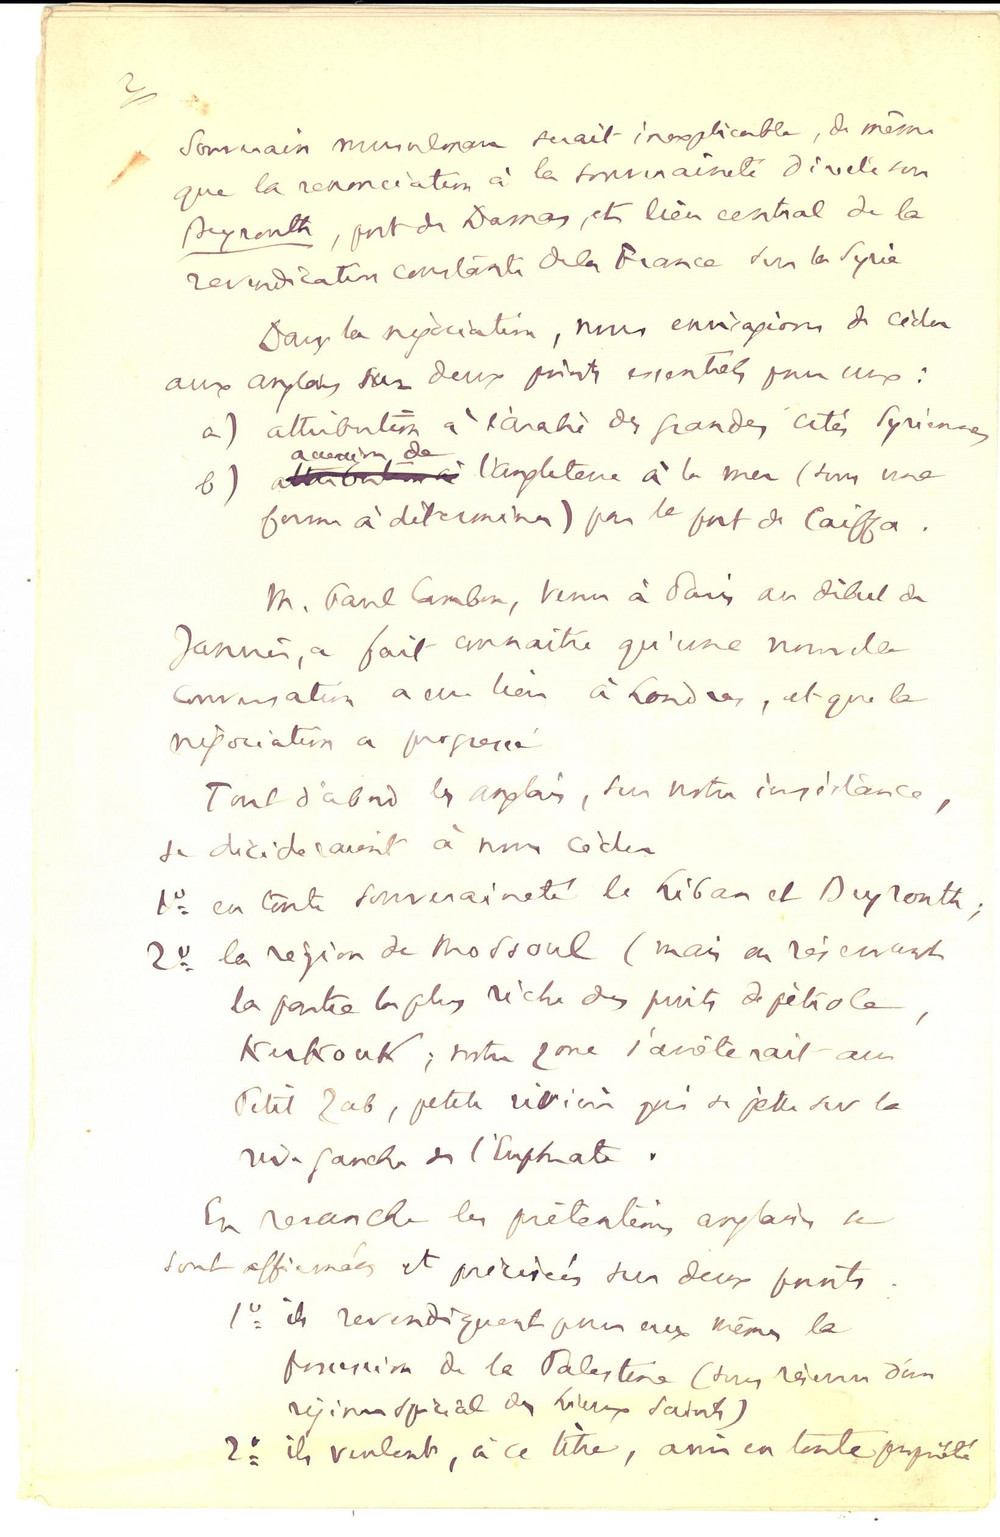 2/
Souverain musulman serait inexplicable, de même
que la renonciation à la souveraineté directe sur
Beyrouth, port de Damas, et lien central de la
revendication constante de la France sur la Syrie
Dans la négociation, nous envisagions de céder
aux anglais sur deux points essentiels pour eux :
a) attribution à l'arabie des grandes cités Syriennes
accession de
b) attribution à l'angleterre à la mer (sous une
forme à déterminer) par le port de Caiffa.
M. Paul Cambon, venu à Paris au début de
Janvier, a fait connaître qu'une nouvelle
conversation a eu lieu à Londres, et que la
négociation a progressé
Tout d'abord les anglais, sur notre insistance,
se décideraient à nous céder
1º en toute souveraineté le Liban et Beyrouth ;
2º la région de Mossoul (mais en réservant
la partie la plus riche des puits de pétrole,
Kerkouk ; notre zone s'arrêterait au
Petit Zab, petite rivière qui se jette sur la
rive gauche de l'Euphrate.
En revanche les prétentions anglaises se
sont affirmées et précisées sur deux points.
1º ils revendiquent pour eux mêmes la
possession de la Palestine (sous réserve d'un
régime spécial des Lieux Saints)
2º ils veulent, à ce titre, avoir en toute propriété